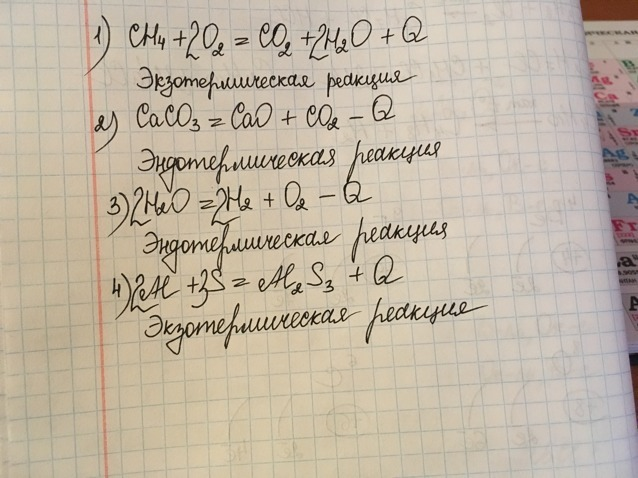 1) CH₄ + 2O₂ = CO₂ + 2H₂O + Q
Экзотермическая реакция
2) CaCO₃ = CaO + CO₂ - Q
Эндотермическая реакция
3) 2H₂O = 2H₂ + O₂ - Q
Эндотермическая реакция
4) 2Al + 3S = Al₂S₃ + Q
Экзотермическая реакция